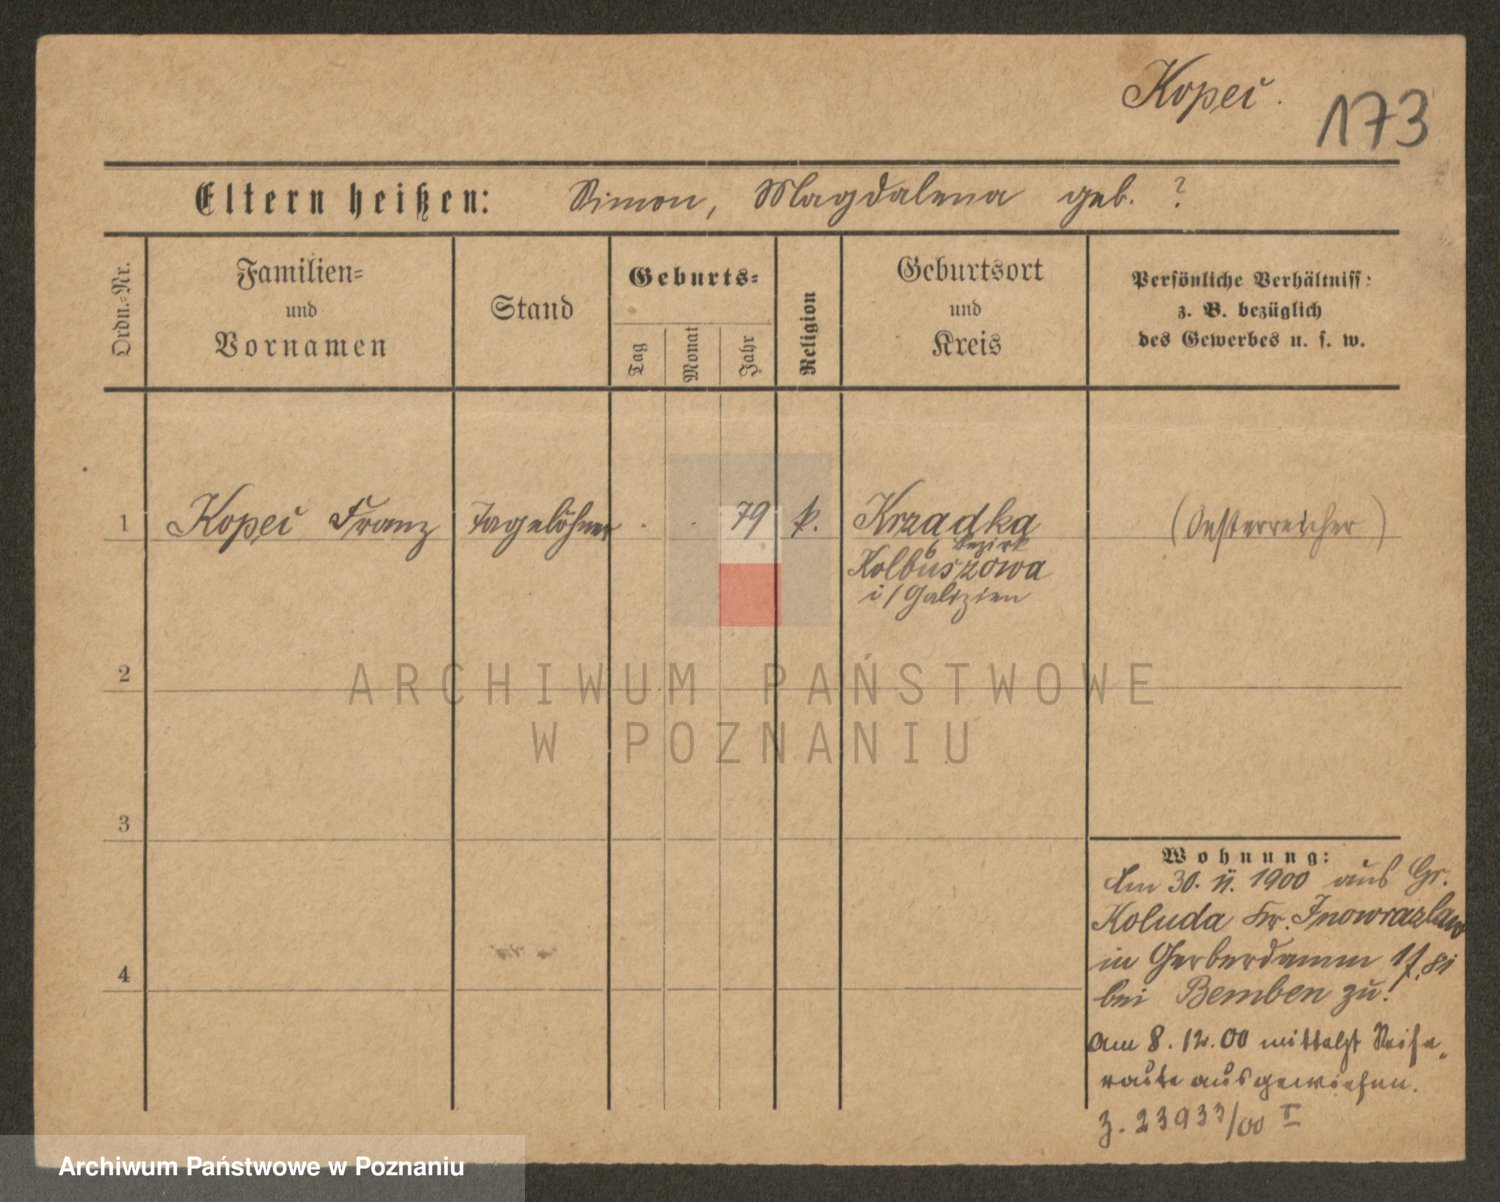 Kopeć.
173
Eltern heißen: Simon, Magdalena geb. ?
Ordn.=Nr.
Familien=
und
Vornamen
Stand
Geburts=
Tag
Monat
Jahr
Religion
Geburtsort
und
Kreis
Persönliche Verhältniss:
z. B. bezüglich
des Gewerbes u. s. w.
1 Kopeć Franz Tagelöhner . . 79 k. Krządka (Oesterreicher)
Bezirk
Kolbuszowa
i/Galizien
2
3
4
Wohnung:
Am 30. 11. 1900 aus Gr.
Koluda Kr. Inowrazlaw
in Gerberdamm
bei Bemben zu!
Am 8. 12. 00 mittelst Reise-
route ausgewiesen.
Z. 23933/00 I
ARCHIWUM PAŃSTWOWE
W POZNANIU
Archiwum Państwowe w Poznaniu